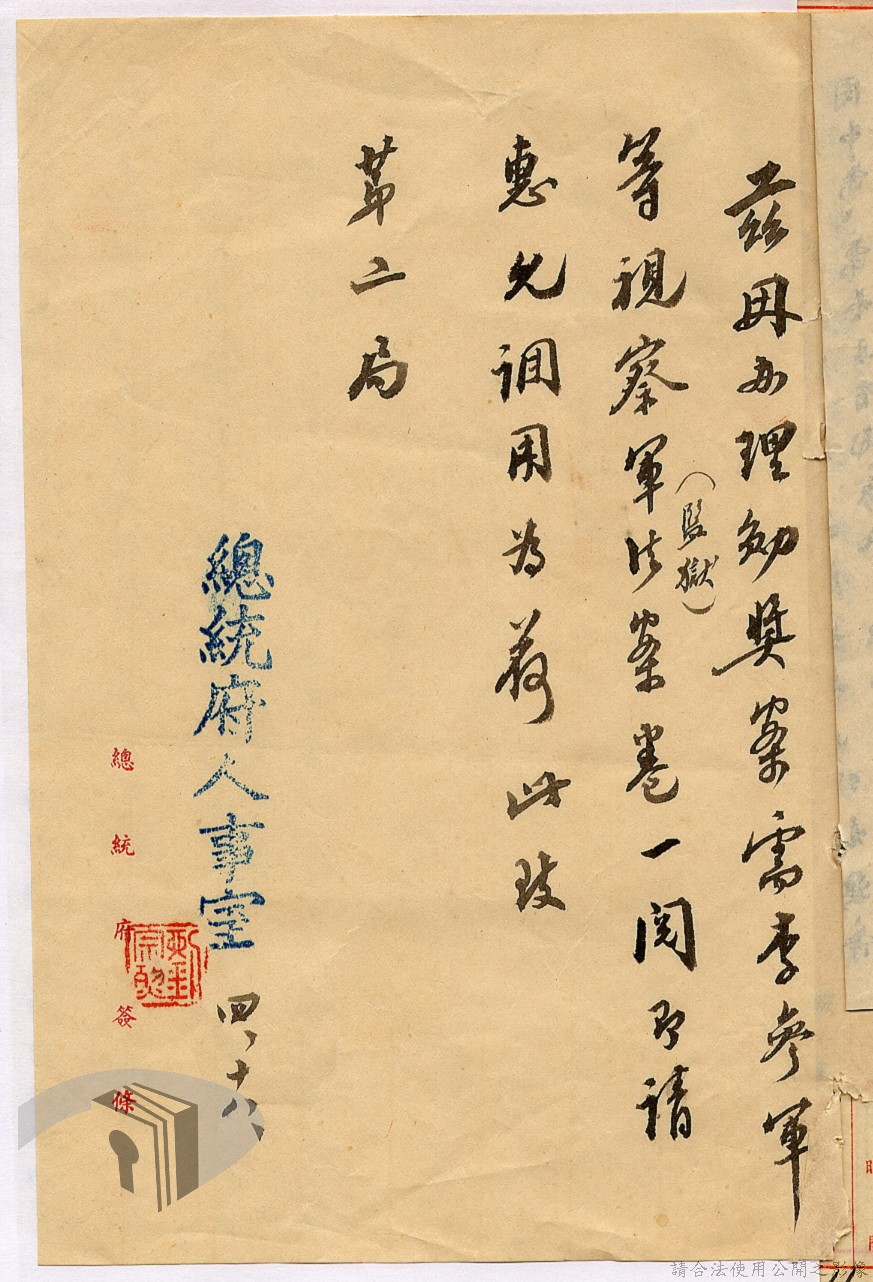 茲因辦理勛獎案需李參軍
等視察軍法（監獄）案卷一閱即請
惠允調用為荷此致
第二局
總統府人事室
四、十八、
總統府簽條
請合法使用公開之影像